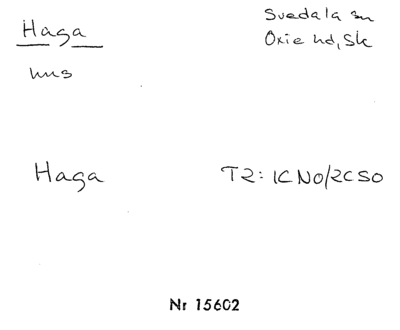 Haga
Svedala sn
Oxie hd, Sk
hus
Haga
T2: 1CNO/2CSO
Nr 15602